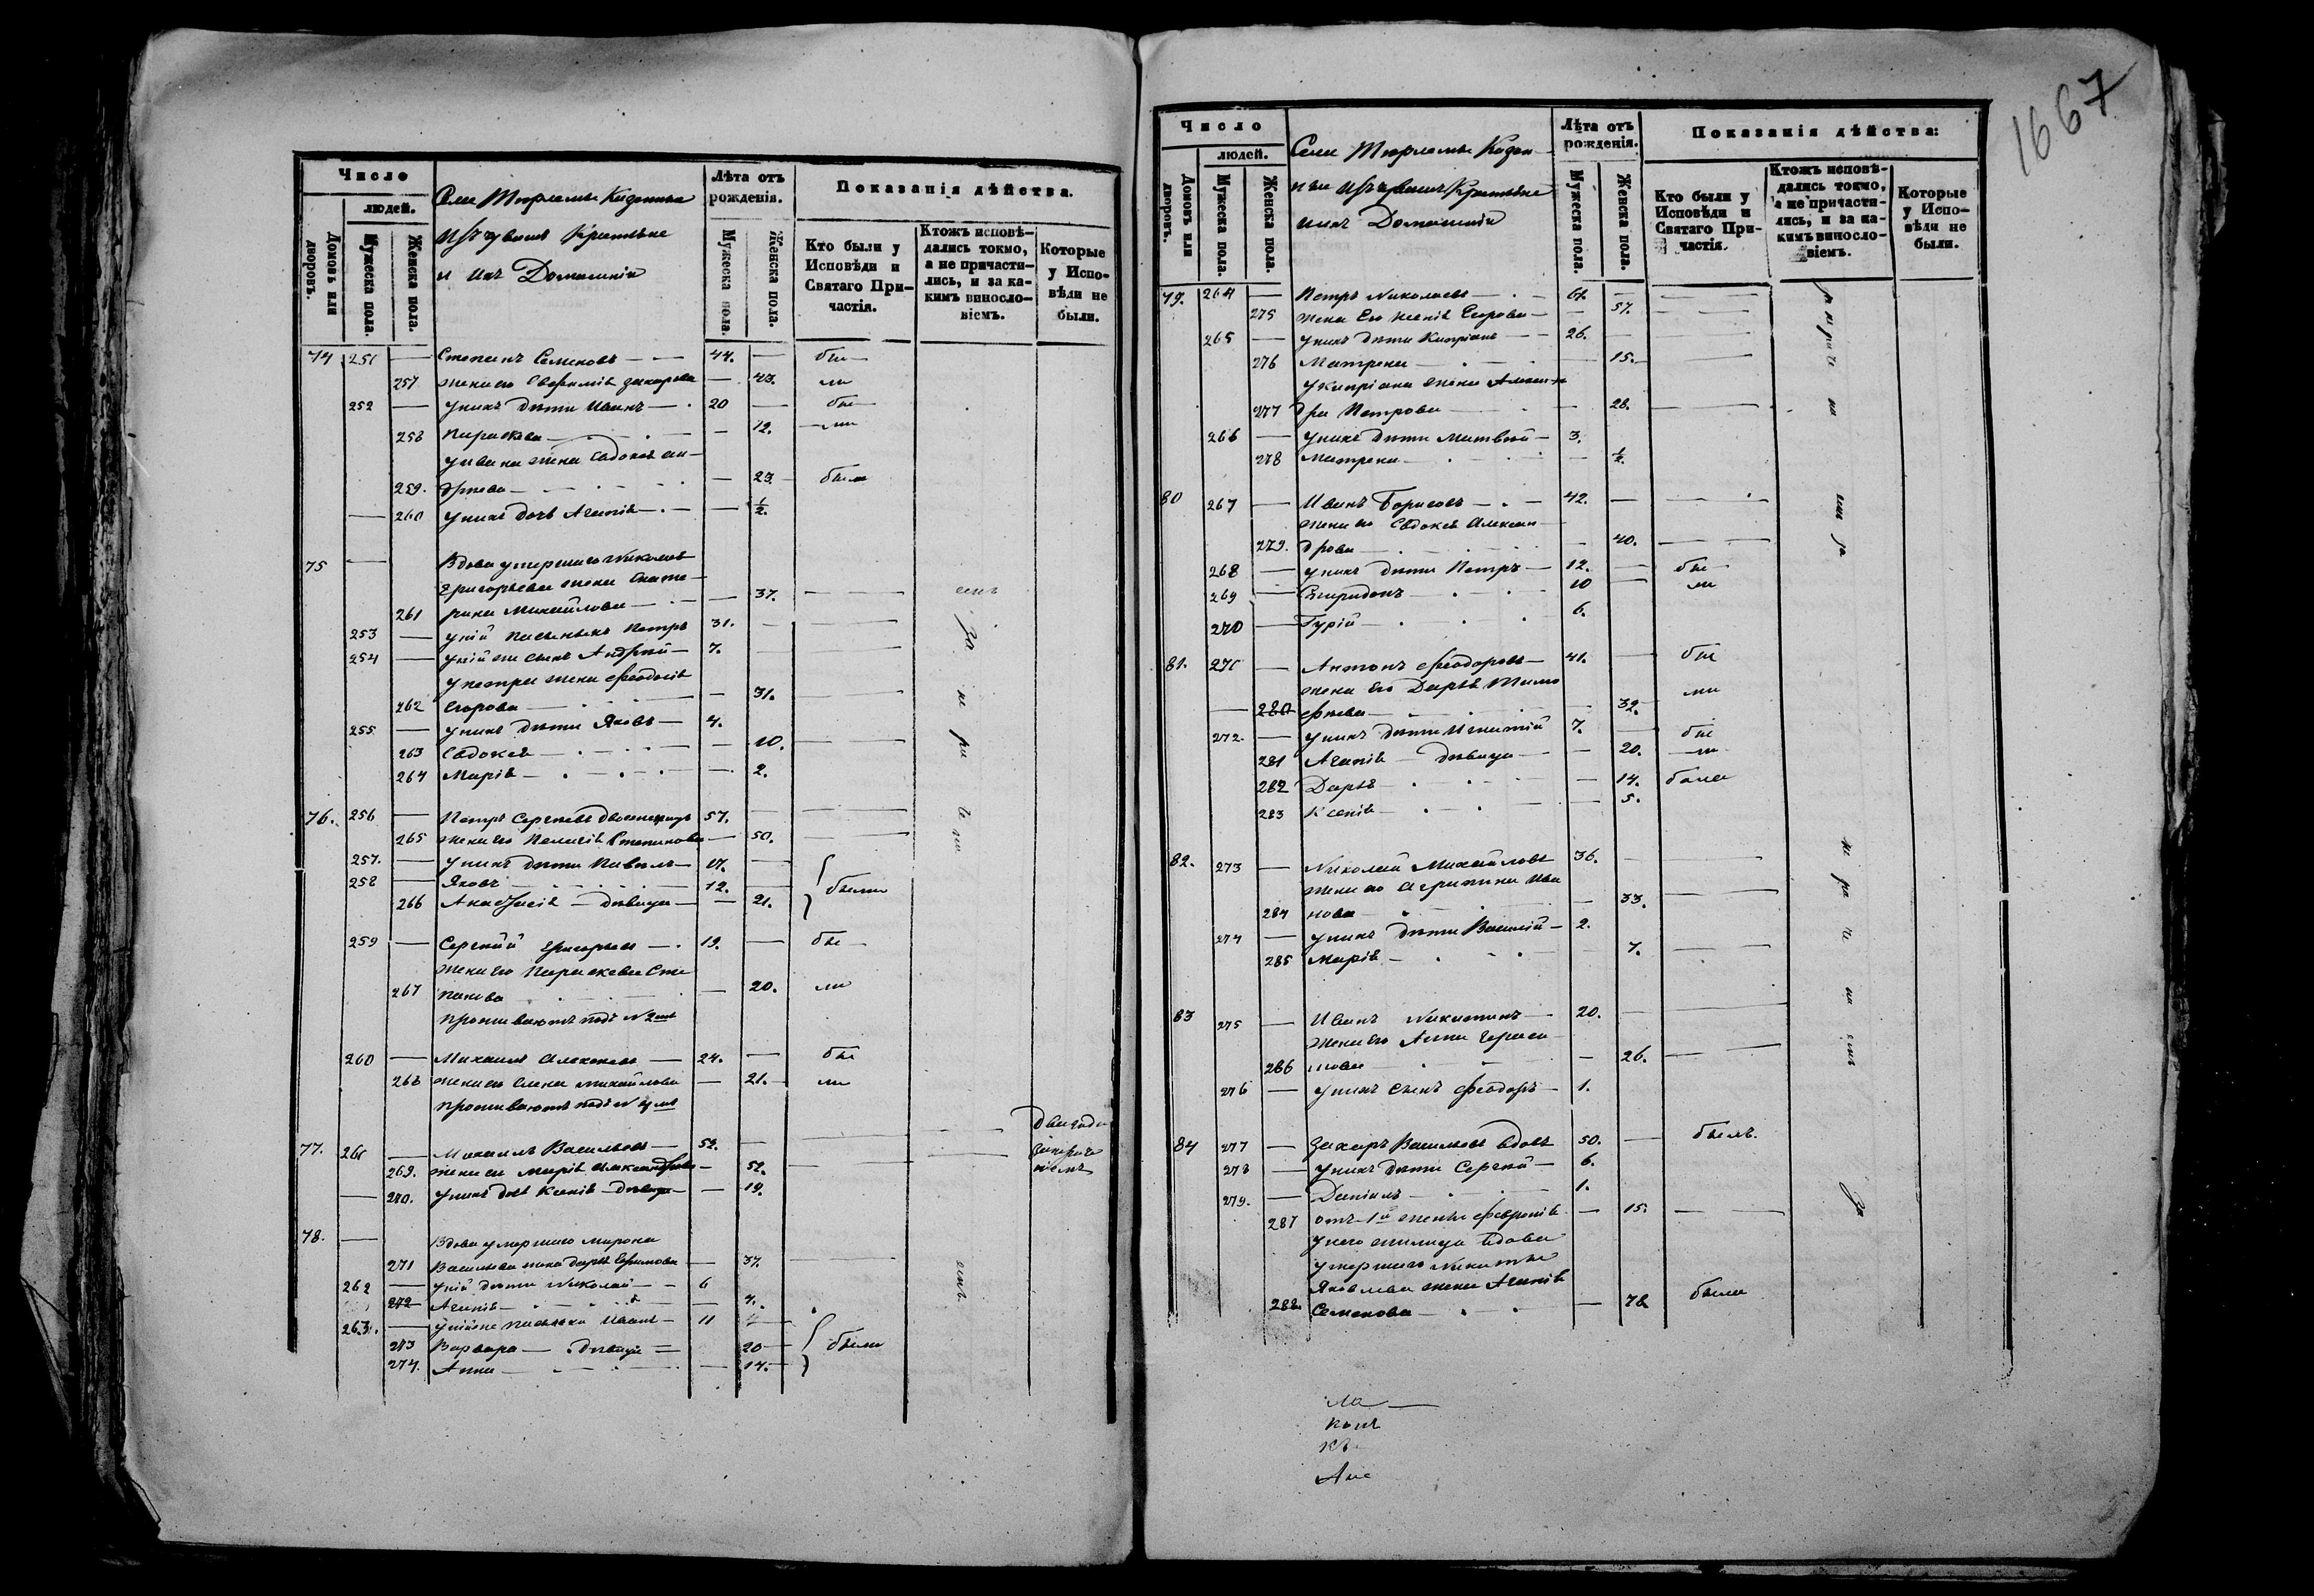 Число
людей.
Домовъ или дворовъ.
Мужеска пола.
Женска пола.
Села Тюрлемы Казенные
Изъ чувашъ Крестьяне
и ихъ Домашніи
Лѣта отъ рожденія.
Мужеска пола.
Женска пола.
Показанія дѣйства.
Кто были у Исповѣди и Святаго При-
частія.
Ктожъ исповѣ-
дались токмо,
а не причасти-
лись, и за ка-
кимъ винословіемъ.
Которые у Испо-
вѣди не были.
74 251 — Степанъ Семеновъ — 44. — бы
257 жена его Евфимія Захарова — 43. ли
252 — у нихъ дѣти Иванъ — 20 — бы
258 Параскева — 12. ли
у Ивана жена Евдокія Ан-
259. дреева — 29. были
— 260 у нихъ дочь Агапія — ½.
75 — Вдова умершаго Николая
Григорьева жена Екате-
261 рина Михайлова — 37.
253 — у ней пасынокъ Петръ 31.
254 — у ней же сынъ Андрей — 7.
у Петра жена Феодосія
262 Егорова — 31.
255 — у нихъ дѣти Яковъ — 4.
263 Евдокія — 10.
264 Марія — 2.
76. 256 — Петръ Сергѣевъ 57.
265 жена его Пелагія Степанова — 50.
257. — у нихъ дѣти Павелъ — 17.
258 — Яковъ — 12. были
266 Анастасія — дѣвица — 21.
259 — Сергѣй Григорьевъ — 19. — бы
жена его Параскева Сте
267 панова — 20. ли
проживаютъ подъ №
260 — Михаилъ Алексѣевъ — 24. — бы
268 жена его Елена Михайлова — 21. ли
проживаютъ подъ №
77. 261 — Михаилъ Васильевъ — 52.
269. жена его Марія Александрова — 52.
— 270. у нихъ дочь Ксенія — дѣвица — 19.
78. — Вдова умершаго Мирона
271 Васильева жена Дарья Ефимова — 37.
262 — у ней дѣти Николай — 6
272 Агапія — 4.
263. — у нея же пасынки Иванъ — 11
273 Варвара — дѣвица — 20 были
274. Анна — 14.
1667
Число
людей.
Домовъ или дворовъ.
Мужеска пола.
Женска пола.
Села Тюрлемы Казен-
ные изъ чувашъ Крестьяне
и ихъ Домашніи
Лѣта отъ рожденія.
Мужеска пола.
Женска пола.
Показанія дѣйства:
Кто были у Исповѣди и Святаго При-
частія.
Ктожъ исповѣ-
дались токмо,
а не причасти-
лись, и за ка-
кимъ винословіемъ.
Которые у Испо-
вѣди не были.
79. 264 — Петръ Николаевъ —
275 жена его Ксенія Егорова — 57.
265 — у нихъ дѣти Кипріанъ — 26.
276 Матрена — 15.
у Кипріана жена Алексан-
277 дра Петрова — 28.
266 — у нихъ дѣти Матвей — 3.
278 Матрена — ½.
80 267 — Иванъ Борисовъ — 42.
жена его Евдокія Алексан-
279. дрова — 40.
268 — у нихъ дѣти Петръ — 12. — бы
269 — Спиридонъ — 10 — ли
270 — Гурій — 6.
81. 271 — Антонъ Феодоровъ — 41. — бы
жена его Дарья Тимо
280 феева — 32. ли
272. — у нихъ дѣти Игнатій 7. — бы
281 Агапія — дѣвица — 20. ли
282 Дарья — 14. была
283 Ксенія — 5.
82. 273 — Николай Михайловъ 36.
жена его Агрипина Ива
284 нова — 33.
274 — у нихъ дѣти Василій — 2.
285 Марія — 7.
83 275 — Иванъ Никитинъ — 20.
жена его Анна Гераси
286 мова — 26.
276 — у нихъ сынъ Феодоръ — 1.
84 277 — Захаръ Васильевъ вдовъ 50. — былъ.
278 — у нихъ дѣти Сергѣй — 6.
279. — Даніилъ — 1.
287 отъ 1й жены Февронія — 15.
у него жилица вдова
умершаго Никиты
Яковлева жена Агапія
288. Семенова — 78 была